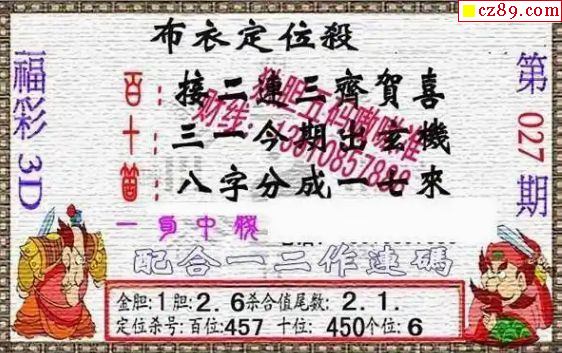 cz89.com
布衣定位殺
福彩3D
第027期
百：接二連三齊賀喜
十：三一今期出玄機
箇：八字分成一七來
一身中候
配合一二作連碼
金胆:1胆:2.6杀合值尾数:2.1.
定位杀号:百位:457 十位:450个位:6